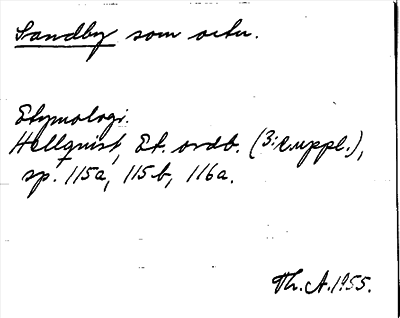 Sandby som ortn.
Etymologi.
Hellquist, Et. ordb. (3:e uppl.),
sp. 115a, 115b, 116a.
Th. A. 1955.